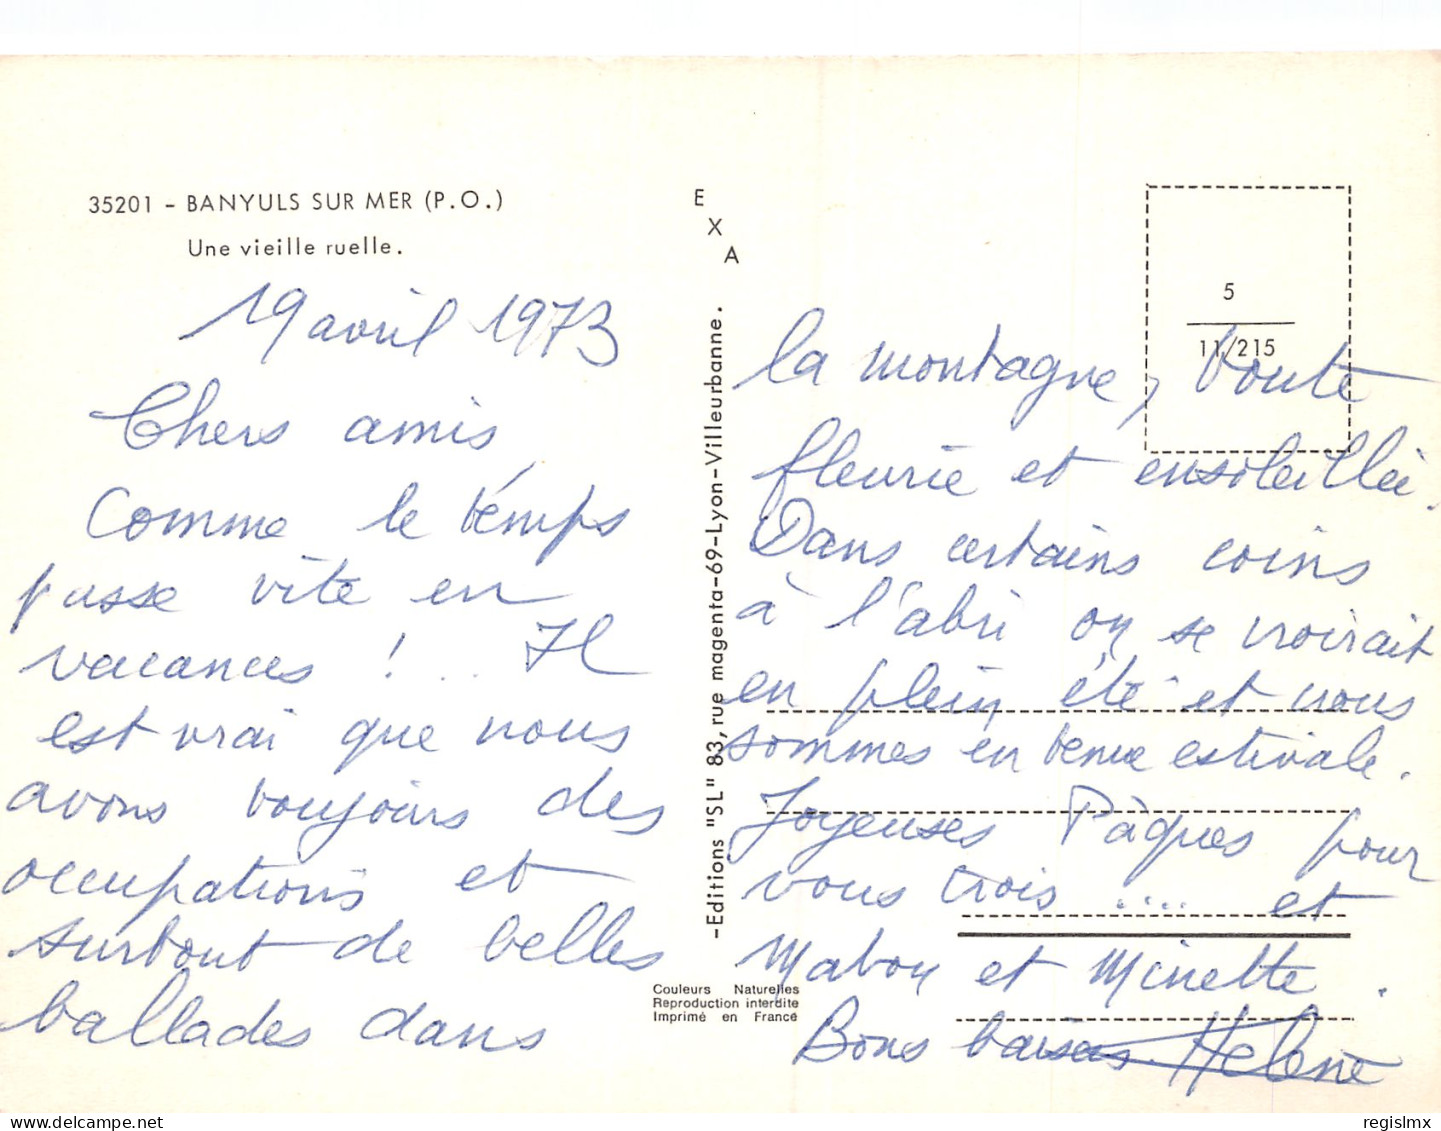 35201 - BANYULS SUR MER (P.O.)
Une vieille ruelle.
19 avril 1973
Chers amis
Comme le temps
passe vite en
vacances ! .. Il
est vrai que nous
avons toujours des
occupations et
surtout de belles
ballades dans
EXA
-Editions "SL" 83, rue magenta-69-Lyon-Villeurbanne.
Couleurs Naturelles
Reproduction interdite
Imprimé en France
5
11/215
la montagne, toute
fleurie et ensoleillée.
Dans certains coins
à l'abri on se croirait
en plein été et nous
sommes en tenue estivale.
Joyeuses Pâques pour
vous trois ..... et
et Minette.
Bons baisers. Helene
regislmx